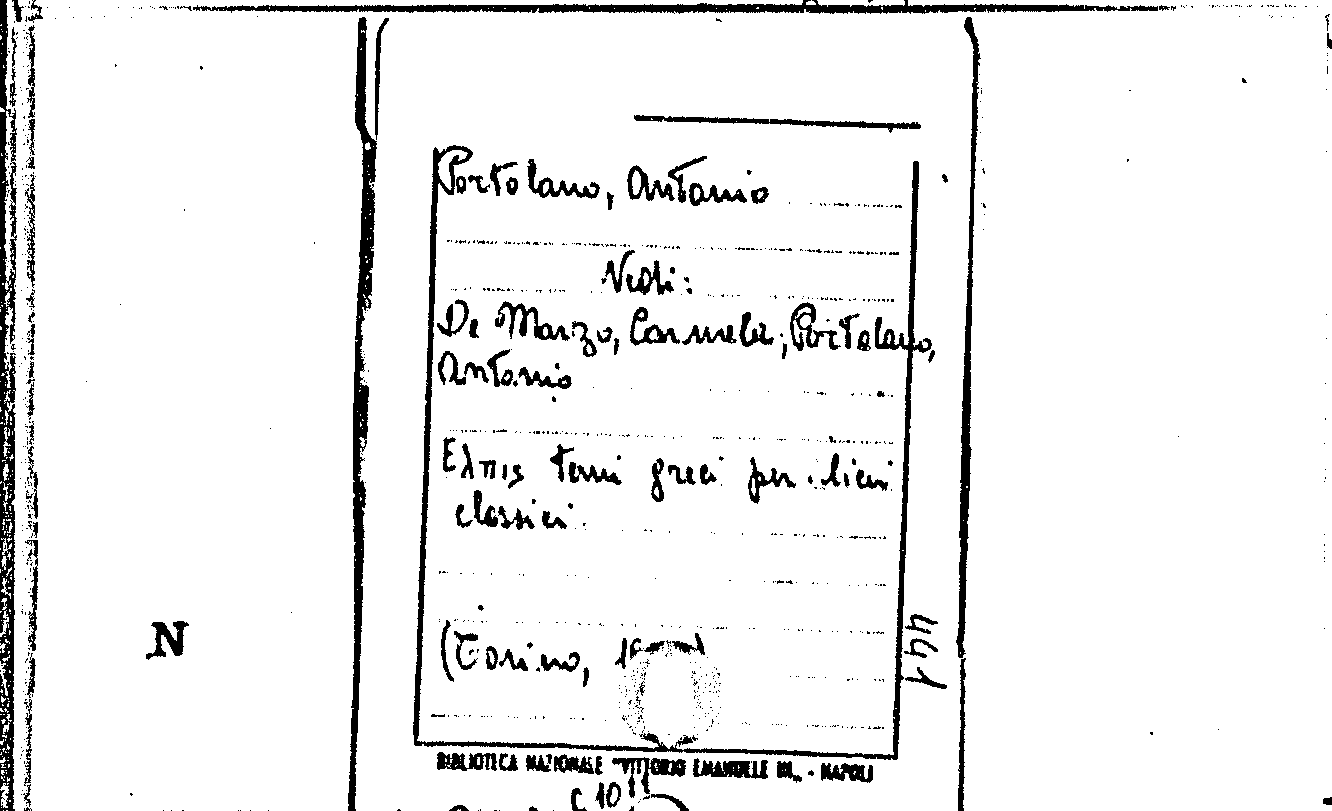 Portolano, Antonio
Vedi:
De Marzo, Carmela; Portolano,
Antonio
Ελπις temi greci per licei
classici.
(Torino,
441
N
BIBLIOTECA NAZIONALE "VITTORIO EMANUELE III„ - NAPOLI